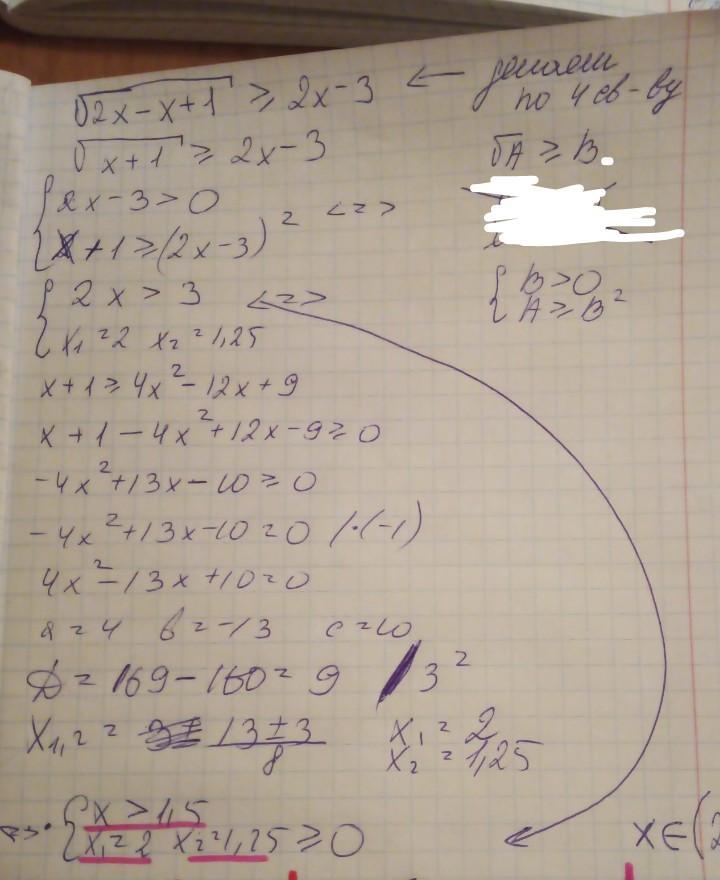 √2x-x+1 ≥ 2x-3 ← делаем
по 4 св-ву
√x+1 ≥ 2x-3
√A ≥ B.
{ 2x-3>0
x+1≥(2x-3)² <=>
{ B>0
A≥B²
{ 2x > 3 <=>
x₁=2 x₂=1,25
x+1≥4x²-12x+9
x+1-4x²+12x-9≥0
-4x²+13x-10≥0
-4x²+13x-10=0 /·(-1)
4x²-13x+10=0
a=4 b=-13 c=10
D=169-160=9 3²
x₁,₂= 13±3
8
x₁=2
x₂=1,25
<=>· { x>1,5
x₁=2 x₂=1,25 ≥0
x∈(2